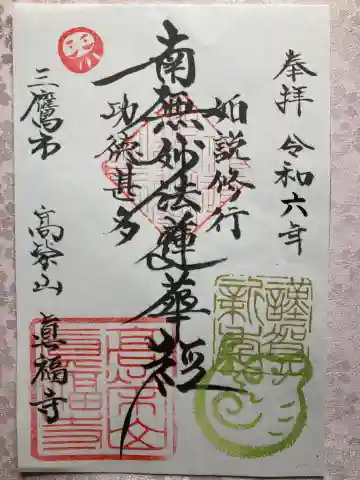 奉拝 令和六年
如説修行
南無妙法蓮華経
功徳甚多
三鷹市 高栄山 真福寺
謹賀
新年